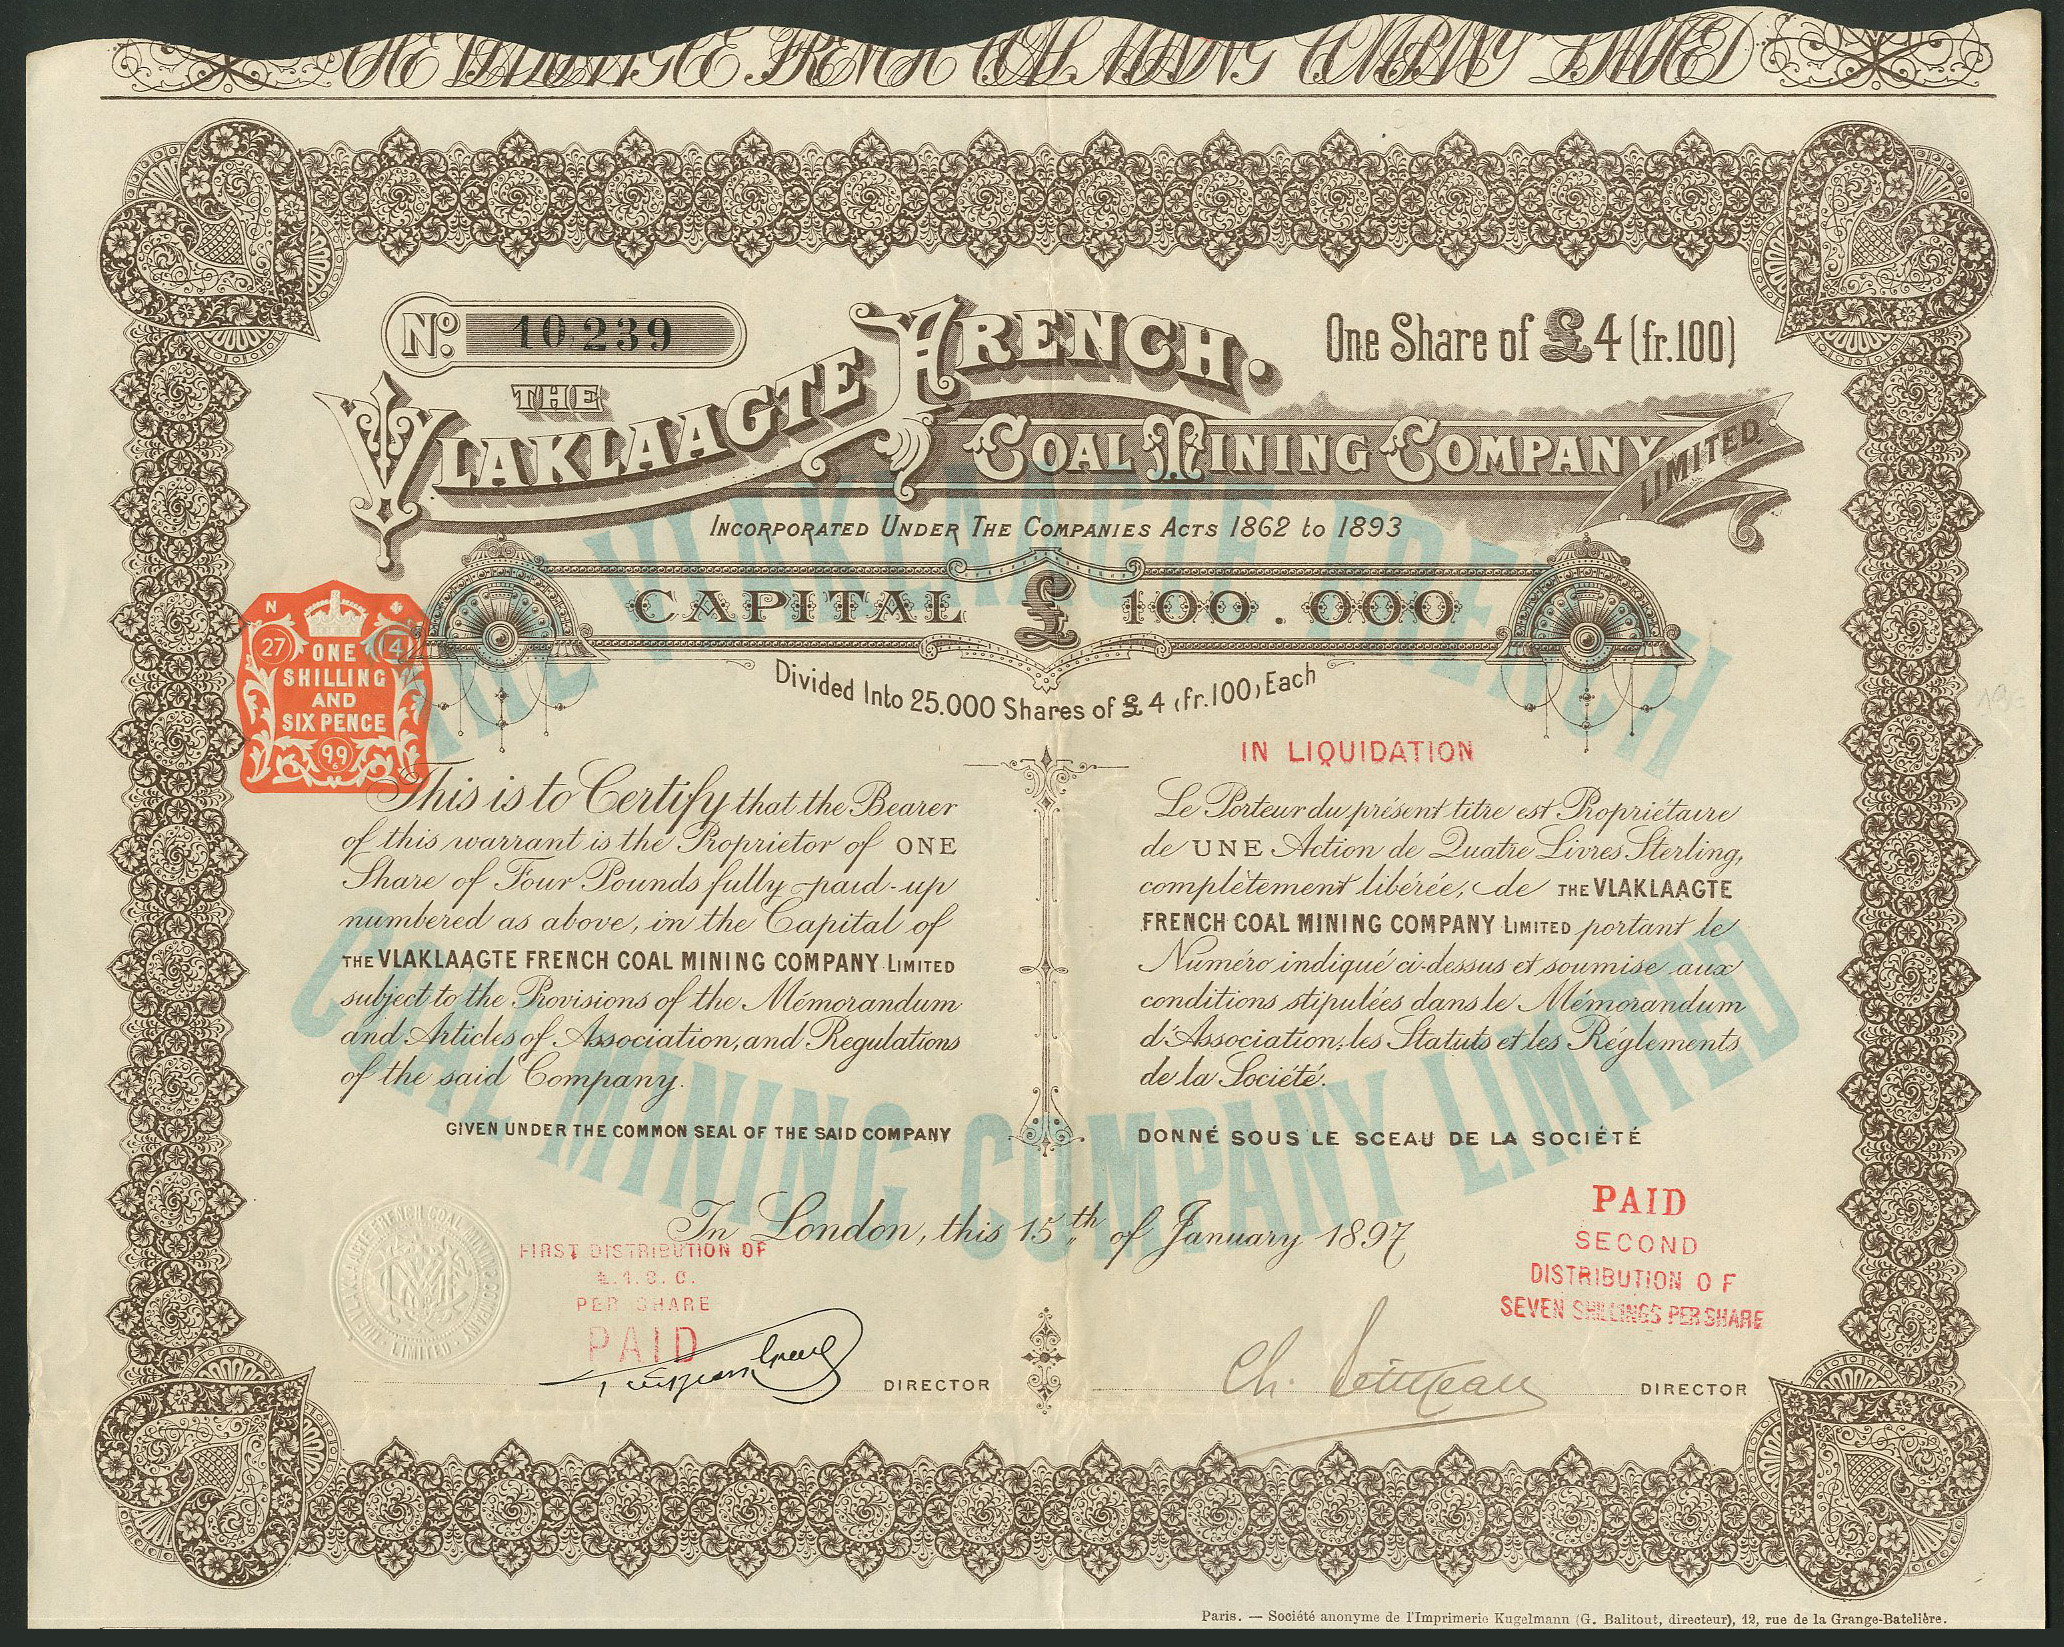 THE VLAKLAAGTE FRENCH COAL MINING COMPANY LIMITED
No. 10.239
One Share of £4 (fr.100)
THE
VLAKLAAGTE FRENCH.
COAL MINING COMPANY
LIMITED.
INCORPORATED UNDER THE COMPANIES ACTS 1862 to 1893
CAPITAL £ 100.000
Divided Into 25.000 Shares of £ 4 (fr.100) Each
N
27 14
ONE
SHILLING
AND
SIX PENCE
99
6
THE VLAKLAAGTE FRENCH
COAL MINING COMPANY LIMITED
This is to Certify that the Bearer
of this warrant is the Proprietor of ONE
Share of Four Pounds fully paid-up
numbered as above, in the Capital of
THE VLAKLAAGTE FRENCH COAL MINING COMPANY LIMITED
subject to the Provisions of the Mémorandum
and Articles of Association, and Regulations
of the said Company.
GIVEN UNDER THE COMMON SEAL OF THE SAID COMPANY
IN LIQUIDATION
Le Porteur du présent titre est Propriétaire
de UNE Action de Quatre Livres Sterling,
complètement libérée, de THE VLAKLAAGTE
FRENCH COAL MINING COMPANY LIMITED portant le
Numéro indiqué ci-dessus et soumise aux
conditions stipulées dans le Mémorandum
d'Association, les Statuts et les Réglements
de la Société.
DONNÉ SOUS LE SCEAU DE LA SOCIÉTÉ
In London, this 15th of January 1897
THE VLAKLAAGTE FRENCH COAL MINING COMPANY
LIMITED
FIRST DISTRIBUTION OF
PER SHARE
PAID
DIRECTOR
PAID
SECOND
DISTRIBUTION OF
SEVEN SHILLINGS PER SHARE
Ch.
DIRECTOR
Paris. — Société anonyme de l'Imprimerie Kugelmann (G. Balitout, directeur), 12, rue de la Grange-Batelière.